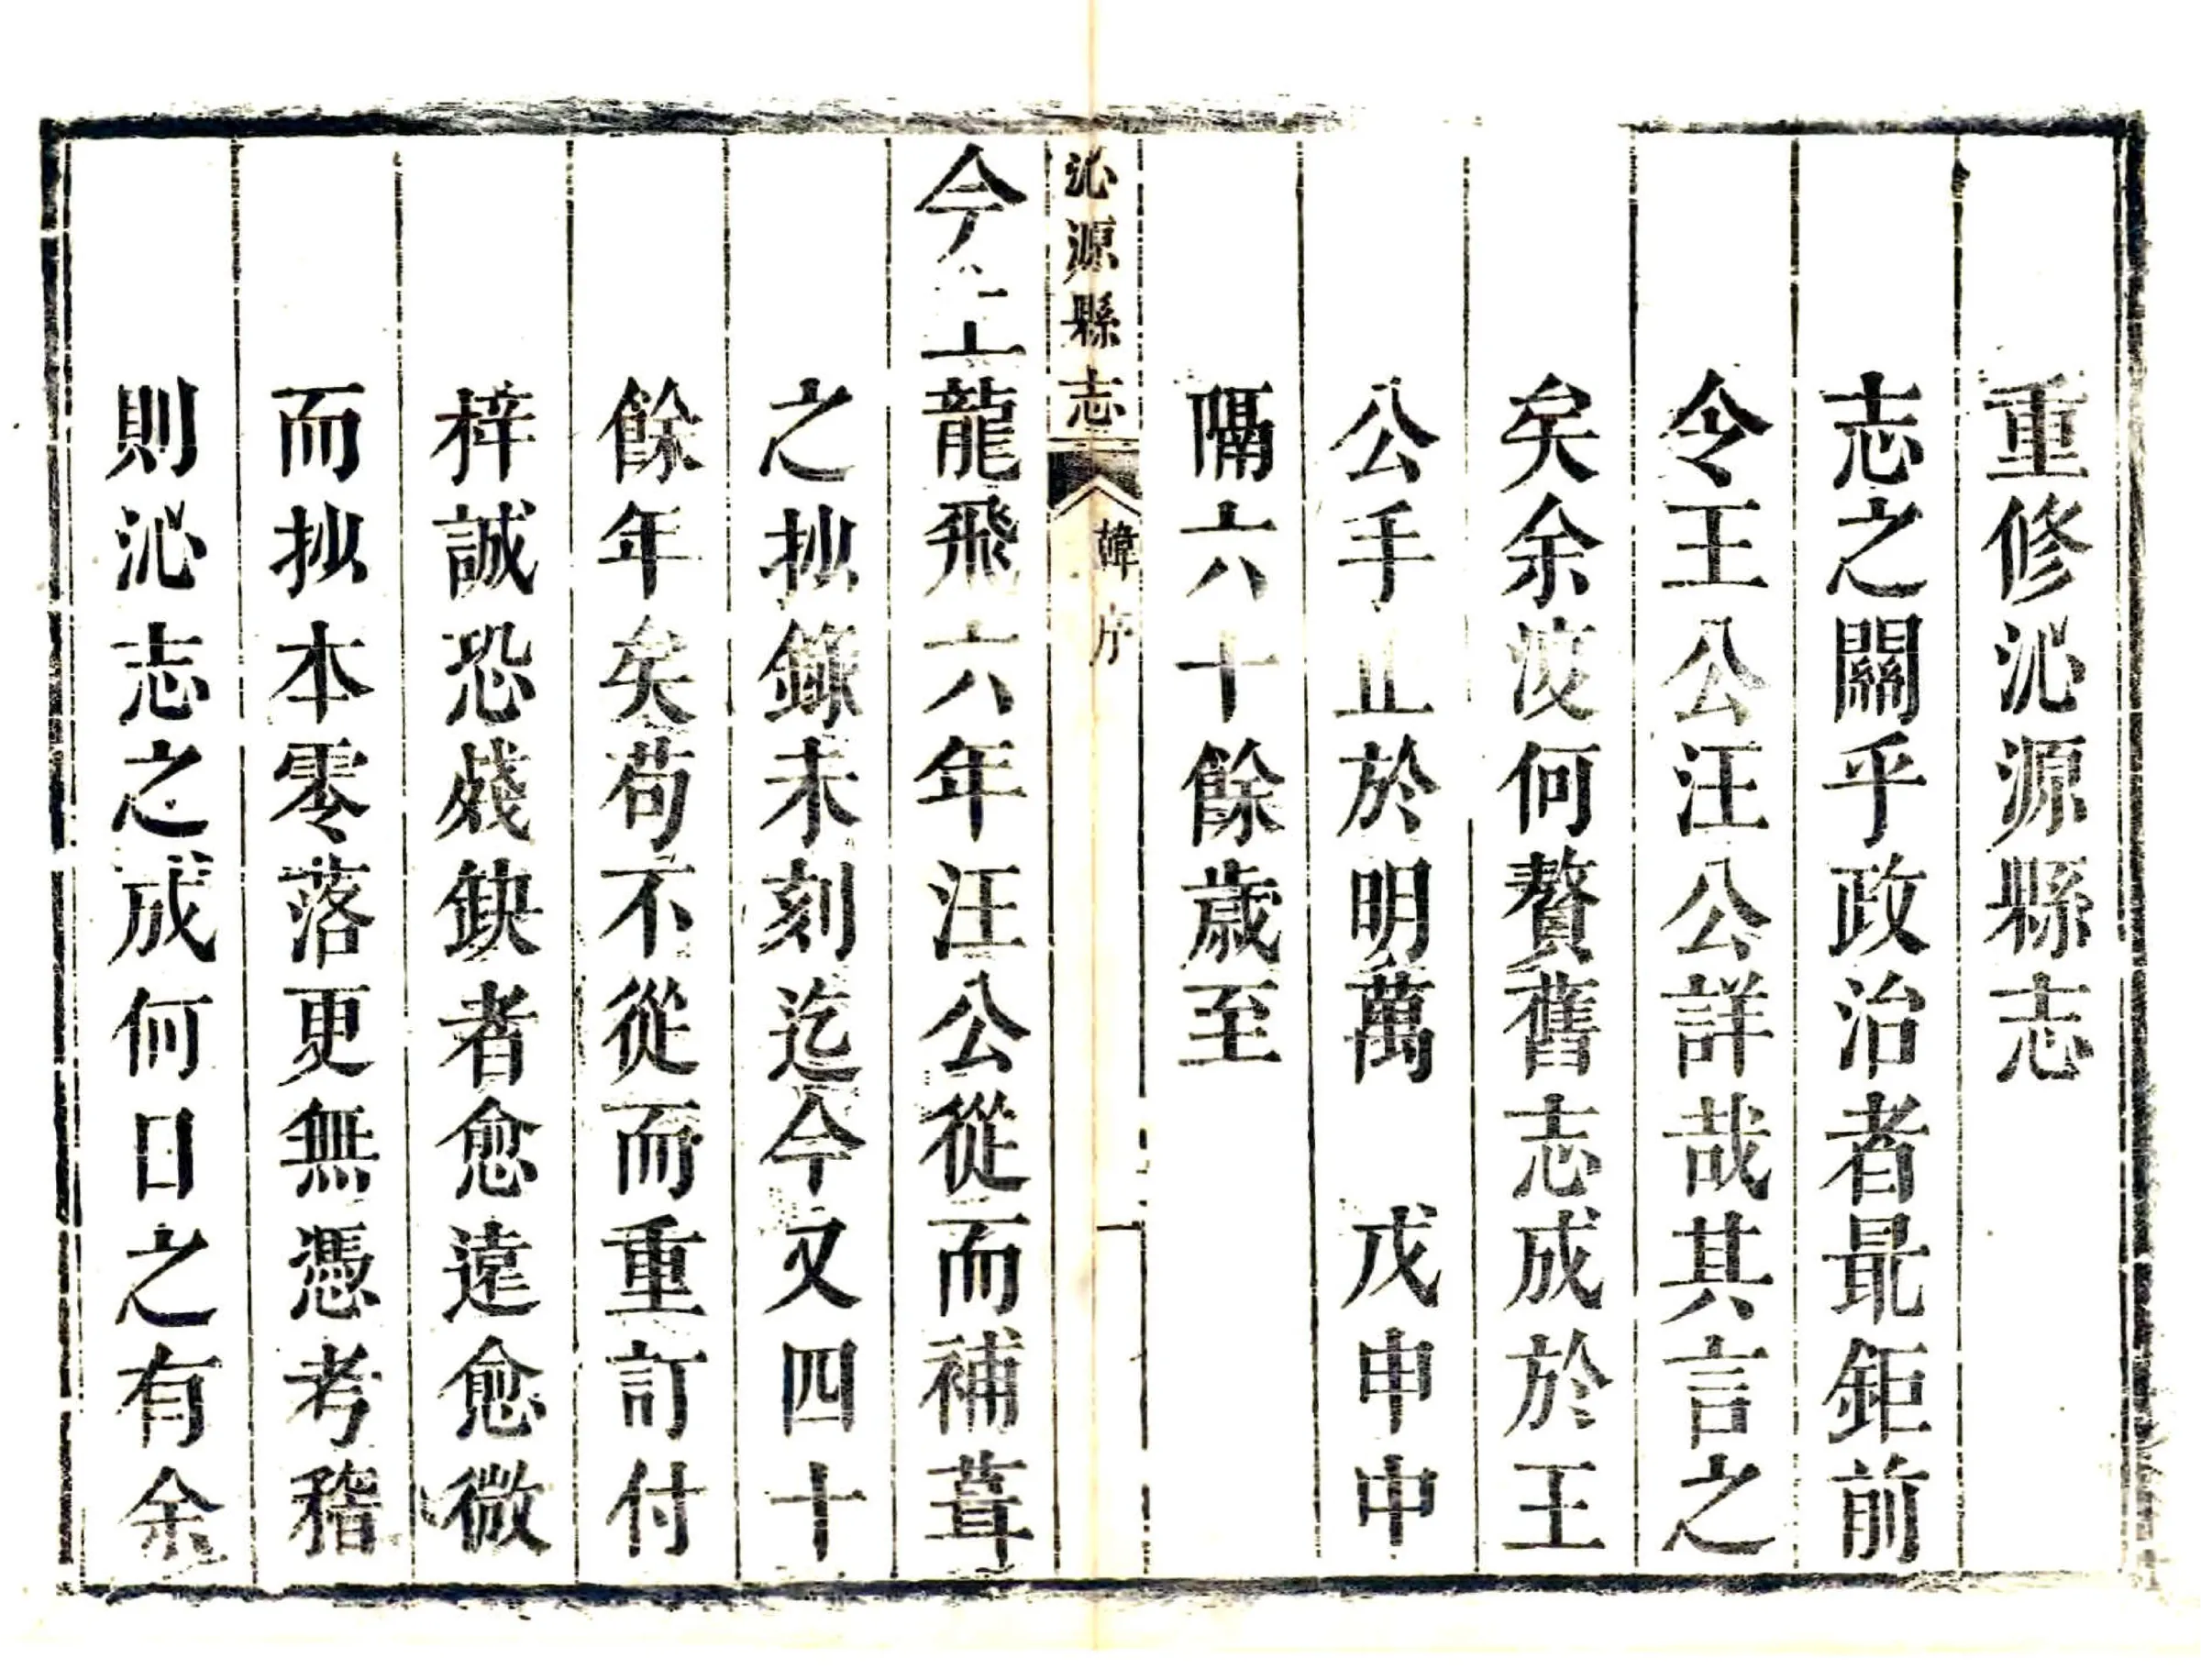 重修沁源縣志
志之關乎政治者最鉅前
令王公汪公詳哉其言之
矣余復何贅舊志成於王
公手止於明萬　戊申中
隔六十餘歲至
沁源縣志　韓序　一
今上龍飛六年汪公從而補葺
之抄錄未刻迄今又四十
餘年矣苟不從而重訂付
梓誠恐殘缺者愈遠愈微
而抄本零落更無憑考稽
則沁志之成何日之有余